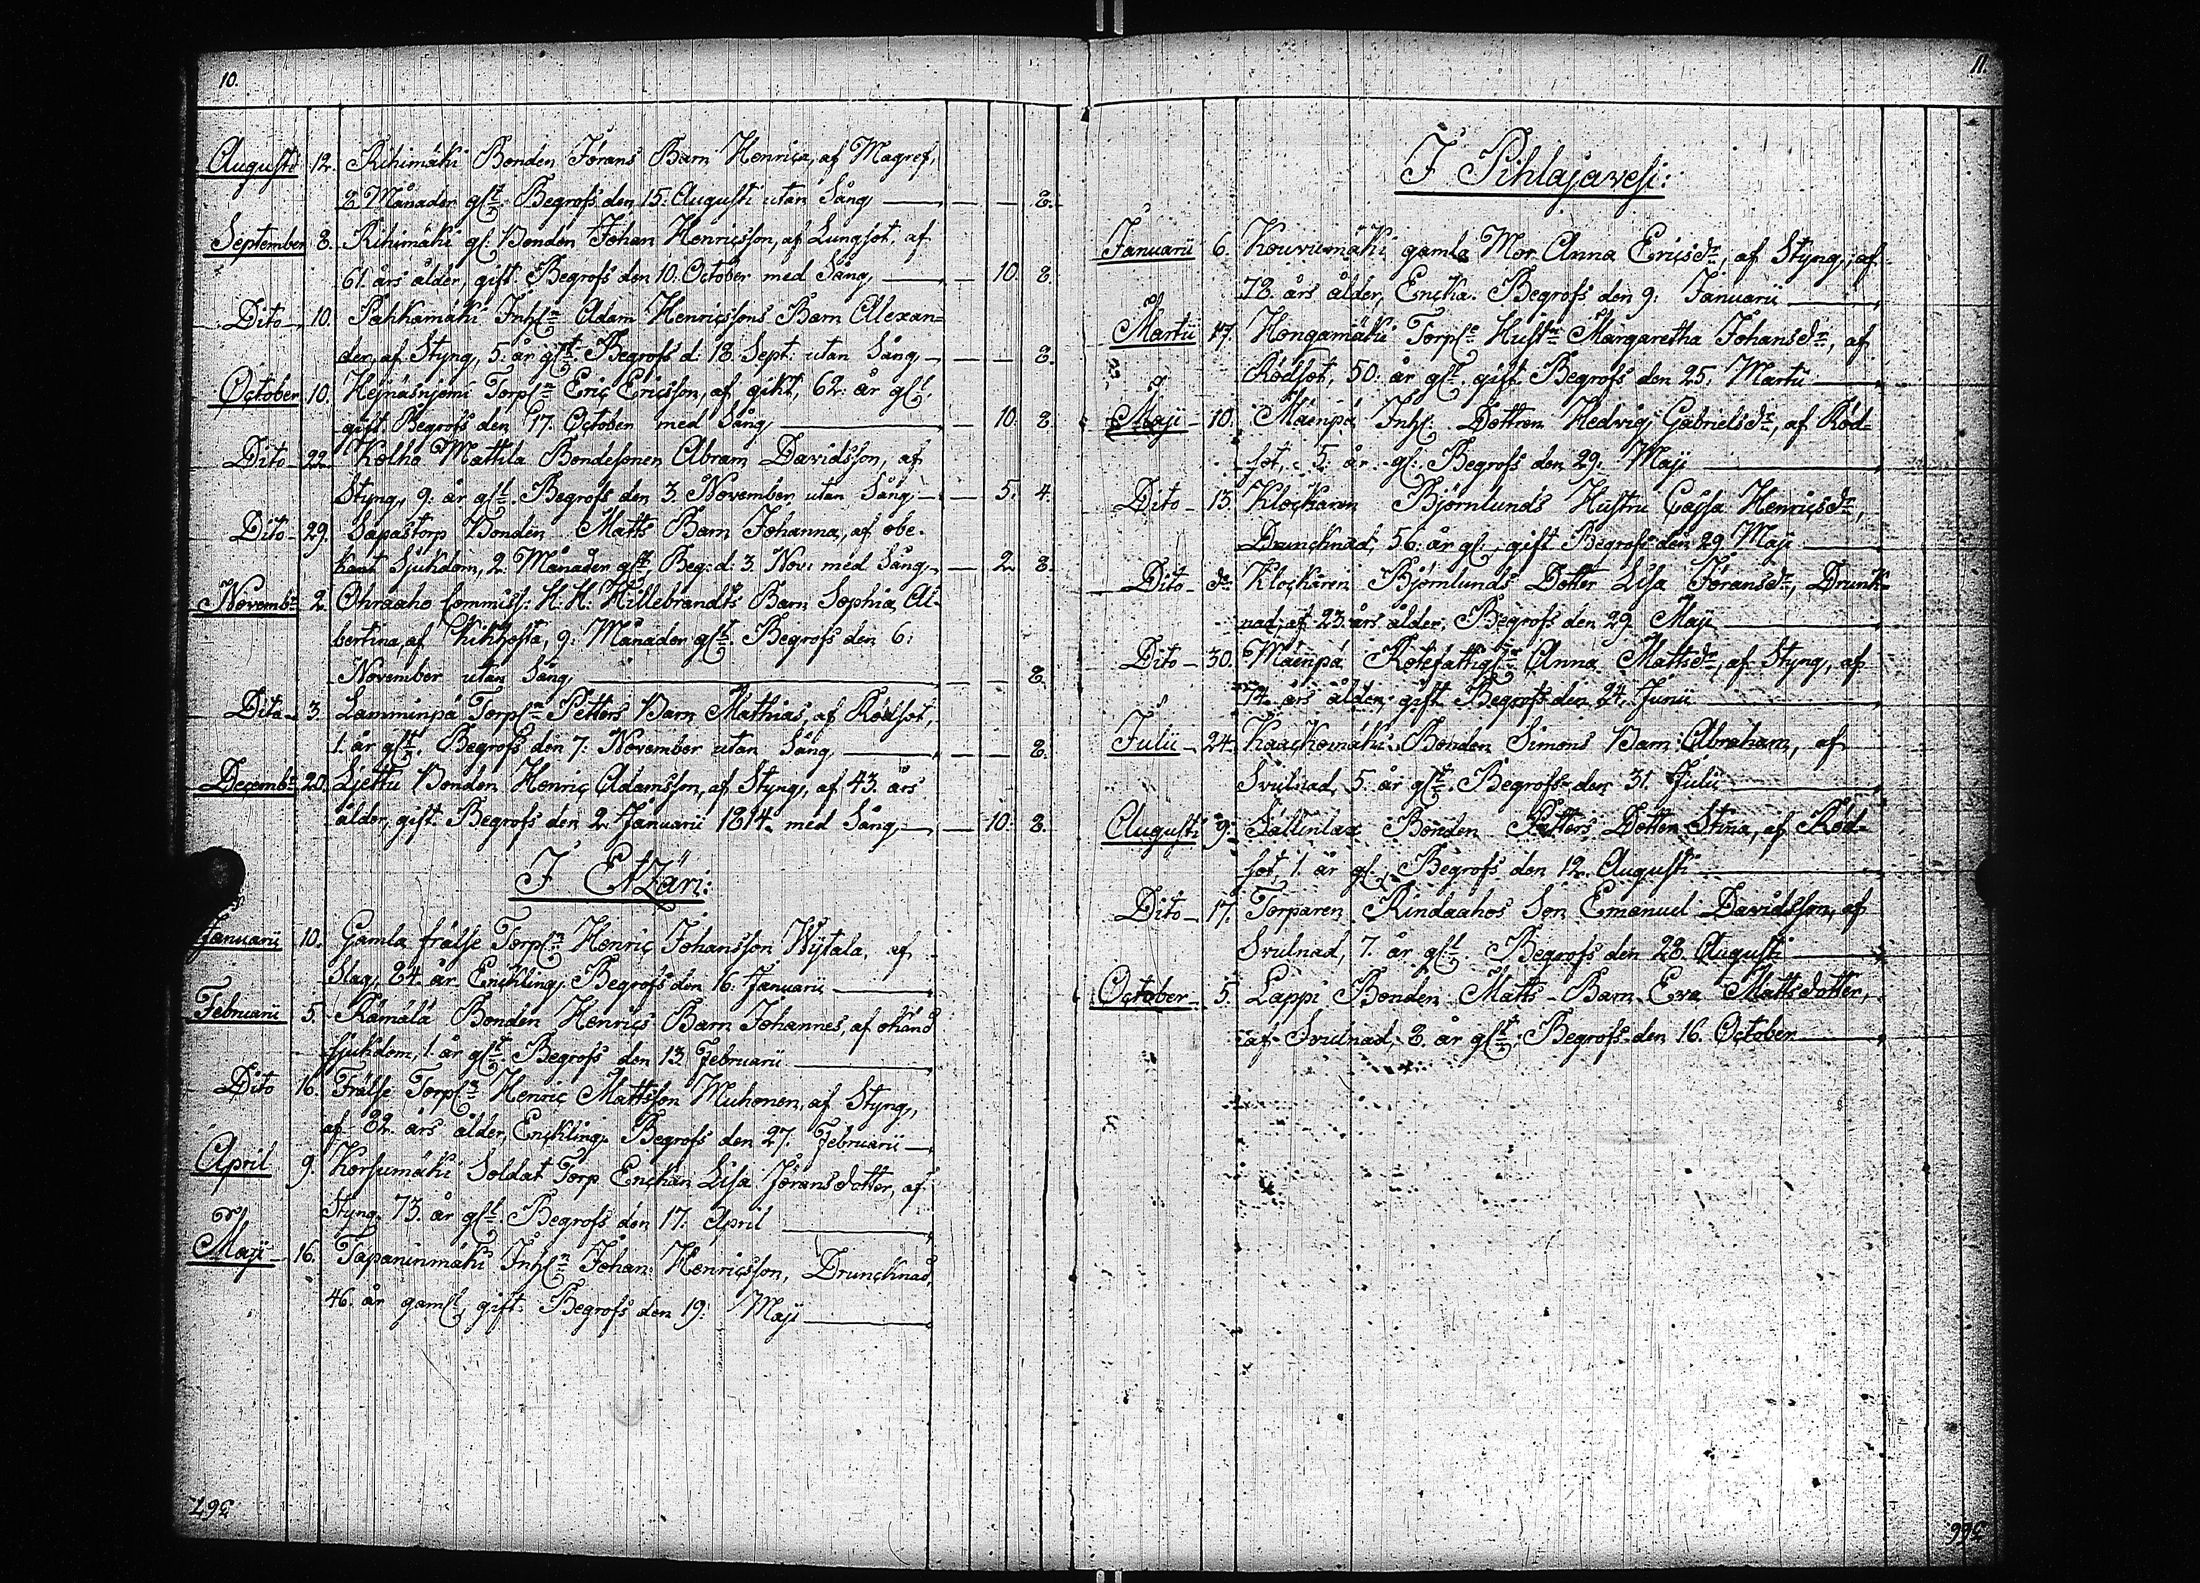 10.
Augusti 12. Rihimäki Bonden Jörans Barn Henrica, af Magref,
8 Månader glt. Begrofs den 15. Augusti utan Sång — — 8.
September 8. Rihimäki gl. Bonden Johan Henricsson, af Lungsot, af
61. års ålder, gift. Begrofs den 10. October med Sång — 10. 8.
Dito 10. Pahkamäki Inhs:n Adam Henricssons Barn Alexan=
der, af Styng, 5. år glt. Begrofs d: 18. Sept: utan Sång — — 8.
October 10. Hejnäsnjemi Torp:n Eric Ericsson, af gikt, 62. år gl.
gift. Begrofs den 17. October med Sång — 10. 8.
Dito 22. Kolho Mattila Bondesonen Abram Davidsson, af
Styng, 9. år glt. Begrofs den 3. November utan Sång — 5. 4.
Dito 29. Sapastorp Bonden Matts Barn Johanna, af obe=
kant Sjukdom, 2. Månader glt. Beg: d: 3. Nov: med Sång — 2. 8.
Novemb:r 2. Ohraaho Commiss: H. H: Hillebrandts Barn Sophia Al=
bertina, af Kikhosta, 9. Månader glt. Begrofs den 6:
November utan Sång, — — 8.
Dito 3. Lamminpä Torp:n Petters Barn Mathias, af Rödsot,
1. år glt. Begrofs den 7. November utan Sång, — — 8.
Decemb:r 20. Ljettu Bonden Henric Adamsson, af Styng, af 43. års
ålder, gift. Begrofs den 2. Januarii 1814. med Sång — 10. 8.
I Etzäri:
Januarii 10. Gamla frälse Torp:n Henric Johansson Wytala, af
Slag, 84. år Enckling, Begrofs den 16. Januarii —
Februarii 5. Rämälä Bonden Henrics Barn Johannes, af okänd
sjukdom, 1. år glt. Begrofs den 13. Februarii —
Dito 16. Frälse Torp:n Henric Mattsson Muhonen, af Styng,
af 82. års ålder, Enckling. Begrofs den 27. Februarii —
April 9. Korsumäki Soldat Torp Enckan Lisa Jöransdotter, af
Styng, 73. år glt. Begrofs den 17. April —
Maji 16. Tapaninmäki Inhs:n Johan Henricsson, Druncknad,
46. år gaml, gift. Begrofs den 19. Maji —
367
11.
I Pihlajavesi:
Januarii 6. Kouvumäki gamla Mor Anna Ericsd:r, af Styng, af
78. års ålder, Encka. Begrofs den 9. Januarii —
Martii 17. Hongamäki Torp:e Hust:n Margaretha Johansd:r, af
Rödsot, 50. år glt. gift. Begrofs den 25. Martii —
Maji 10. Mäenpä Inhs: Dottren Hedvig Gabrielsd:r, af Röd=
sot, 5. år gl. Begrofs den 29. Maji —
Dito 13. Klockaren Björnlunds Hustru Cajsa Henricsd:r,
Druncknad, 56. år gl, gift. Begrofs den 29 Maji —
Dito d:o Klockaren Björnlunds Dotter Lisa Jöransd:r, Drunk=
nad, af 23. års ålder. Begrofs den 29. Maji —
Dito 30. Mäenpä Rotefattig Anna Mattsd:r, af Styng, af
74. års ålder, gift. Begrofs den 24. Junii —
Julii 24. Kaackomäki Bonden Simons Barn Abraham, af
Svulnad, 5. år glt. Begrofs den 31. Julii —
Augusti 9. Sällinlax Bonden Petters Dotter Stina, af Röd=
sot, 1. år gl. Begrofs den 12. Augusti —
Dito 17. Torparen Rindaahos Son Emanuel Davidsson, af
Svulnad, 7. år glt. Begrofs den 28. Augusti —
October 5. Lappi Bonden Matts Barn Eva Mattsdotter,
af Svulnad, 8. år glt. Begrofs den 16. October —
366